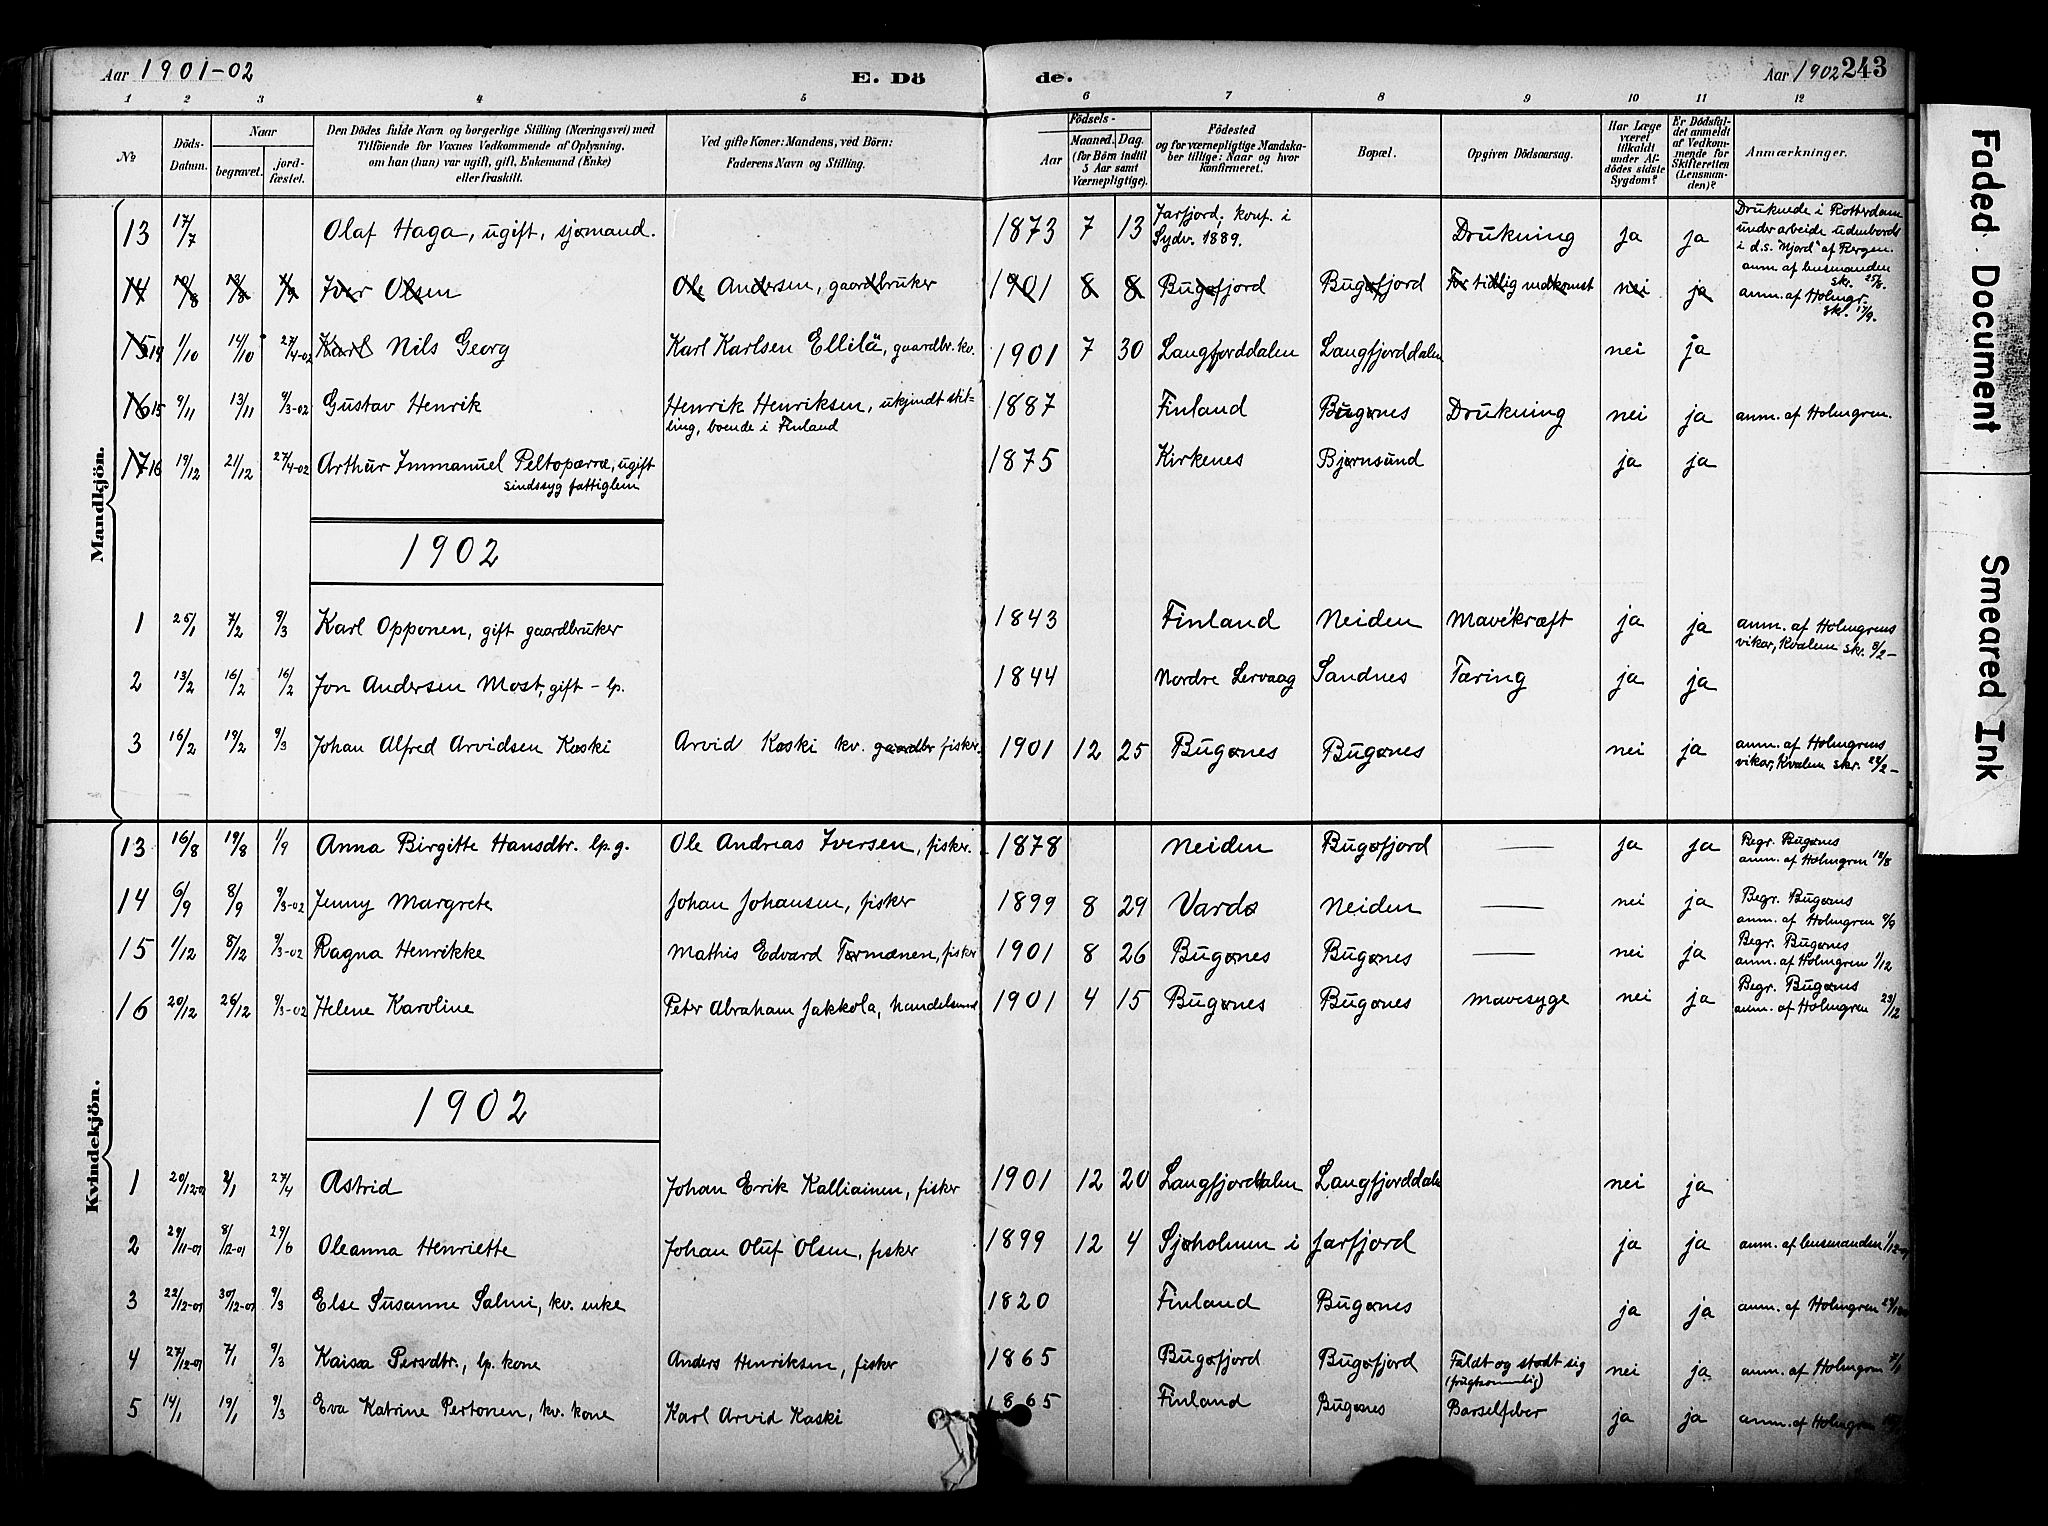 Aar 1901-02
E. Dö
de.
Aar 1902 243
1 2 3 4 5 6 7 8 9 10 11 12
№
Döds-Datum.
Naar
begravet.
jord-fæstet.
Den Dödes fulde Navn og borgerlige Stilling (Næringsvei) med
Tilföiende for Voxnes Vedkommende af Oplysning,
om han (hun) var ugift, gift, Enkemand (Enke)
eller fraskilt.
Ved gifte Koner: Mandens, ved Börn:
Faderens Navn og Stilling.
Födsels-
Aar
Maaned. Dag.
(for Börn indtil
5 Aar samt
Værnepligtige).
Födested
og for værnepligtige Mandska-
ber tillige: Naar og hvor
konfirmeret.
Bopæl.
Opgiven Dödsaarsag.
Har Læge
været
tilkaldt
under Af-
dödes sidste
Sygdom?
Er Dödsfal-
det anmeldt
af Vedkom-
mende for
Skifteretten
(Lensman-
den)?
Anmærkninger.
Mandkjön.
13 17/7 Olaf Haga, ugift, sjømand. 1873 7 13 Jarfjord, konf. i Sydv. 1889. Drukning ja ja Druknede i Rotterdam under arbeide udenbords i d.s. "Njord" af Bergen. anm. af lensmanden sk. 25/8.
14 10/8 13/8 1/9 Iver Olsen Ole Andersen, gaardbruker 1901 8 8 Bugøfjord Bugøfjord For tidlig nedkomst nei ja anm. af Holmgr. sk. 17/9.
15 14 1/10 14/10 27/4-02 Karl Nils Georg Karl Karlsen Ellilä, gaardbr. kv. 1901 7 30 Langfjorddalen Langfjorddalen nei ja
16 15 9/11 13/11 9/3-02 Gustav Henrik Henrik Henriksen, ukjendt stilling, boende i Finland 1887 Finland Bugønes Drukning nei ja anm. af Holmgren.
17 16 19/12 21/12 27/4-02 Arthur Immanuel Peltopærra, ugift sindssyg fattiglem 1875 Kirkenes Bjørnsund ja ja
1902
1 25/1 7/2 9/3 Karl Opponen, gift gaardbruker 1843 Finland Neiden Mavekræft ja ja anm. af Holmgrens vikar, Kvalem skr. 8/2-
2 13/2 16/2 16/2 Jon Andersen Most, gift - lp. 1844 Nordre Lervaag Sandnes Tæring ja ja
3 16/2 19/2 9/3 Johan Alfred Arvidsen Koski Arvid Koski kv. gaardbr fisker. 1901 12 25 Bugønes Bugønes nei ja anm. af Holmgrens vikar, Kvalem skr. 22/2-
Kvindekjön.
13 16/8 19/8 1/9 Anna Birgitte Hansdtr. lp. g. Ole Andreas Iversen, fisker. 1878 Neiden Bugøfjord — ja ja Begr. Bugønes anm. af Holmgren 18/8
14 6/9 8/9 9/3-02 Jenny Margrete Johan Johansen, fisker 1899 8 29 Vardø Neiden — nei ja Begr. Bugønes anm. af Holmgren 9/9
15 1/12 8/12 9/3-02 Ragna Henrikke Mathis Edvard Tørmænen, fisker 1901 8 26 Bugønes Bugønes — nei ja Begr. Bugønes anm. af Holmgren 1/12
16 20/12 26/12 9/3-02 Helene Karoline Peter Abraham Jakkola, handelsmd 1901 4 15 Bugønes Bugønes mavesyge nei ja Begr. Bugønes anm. af Holmgren 23/12
1902
1 20/12-01 2/1 27/4 Astrid Johan Erik Kalliainen, fisker 1901 12 20 Langfjorddalen Langfjorddalen nei ja
2 29/11-01 8/12-01 29/6 Oleanna Henriette Johan Oluf Olsen, fisker 1899 12 4 Sjøholmen i Jarfjord ja ja anm. af lensmanden 1/12-01
3 22/12-01 30/12-01 9/3 Else Susanne Salmi, kv. enke 1820 Finland Bugønes ja ja anm. af Holmgren
4 27/12-01 7/1 9/3 Kaisa Persdtr., lp. kone Anders Henriksen, fisker 1865 Bugøfjord Bugøfjord Faldt og stødt sig (frugtsommelig) nei ja anm. af Holmgren
5 14/1 19/1 9/3 Eva Katrine Pertonen, kv. kone Karl Arvid Koski 1865 Finland Bugønes Barselfeber ja ja anm. af Holmgren
Faded Document
Smeared Ink